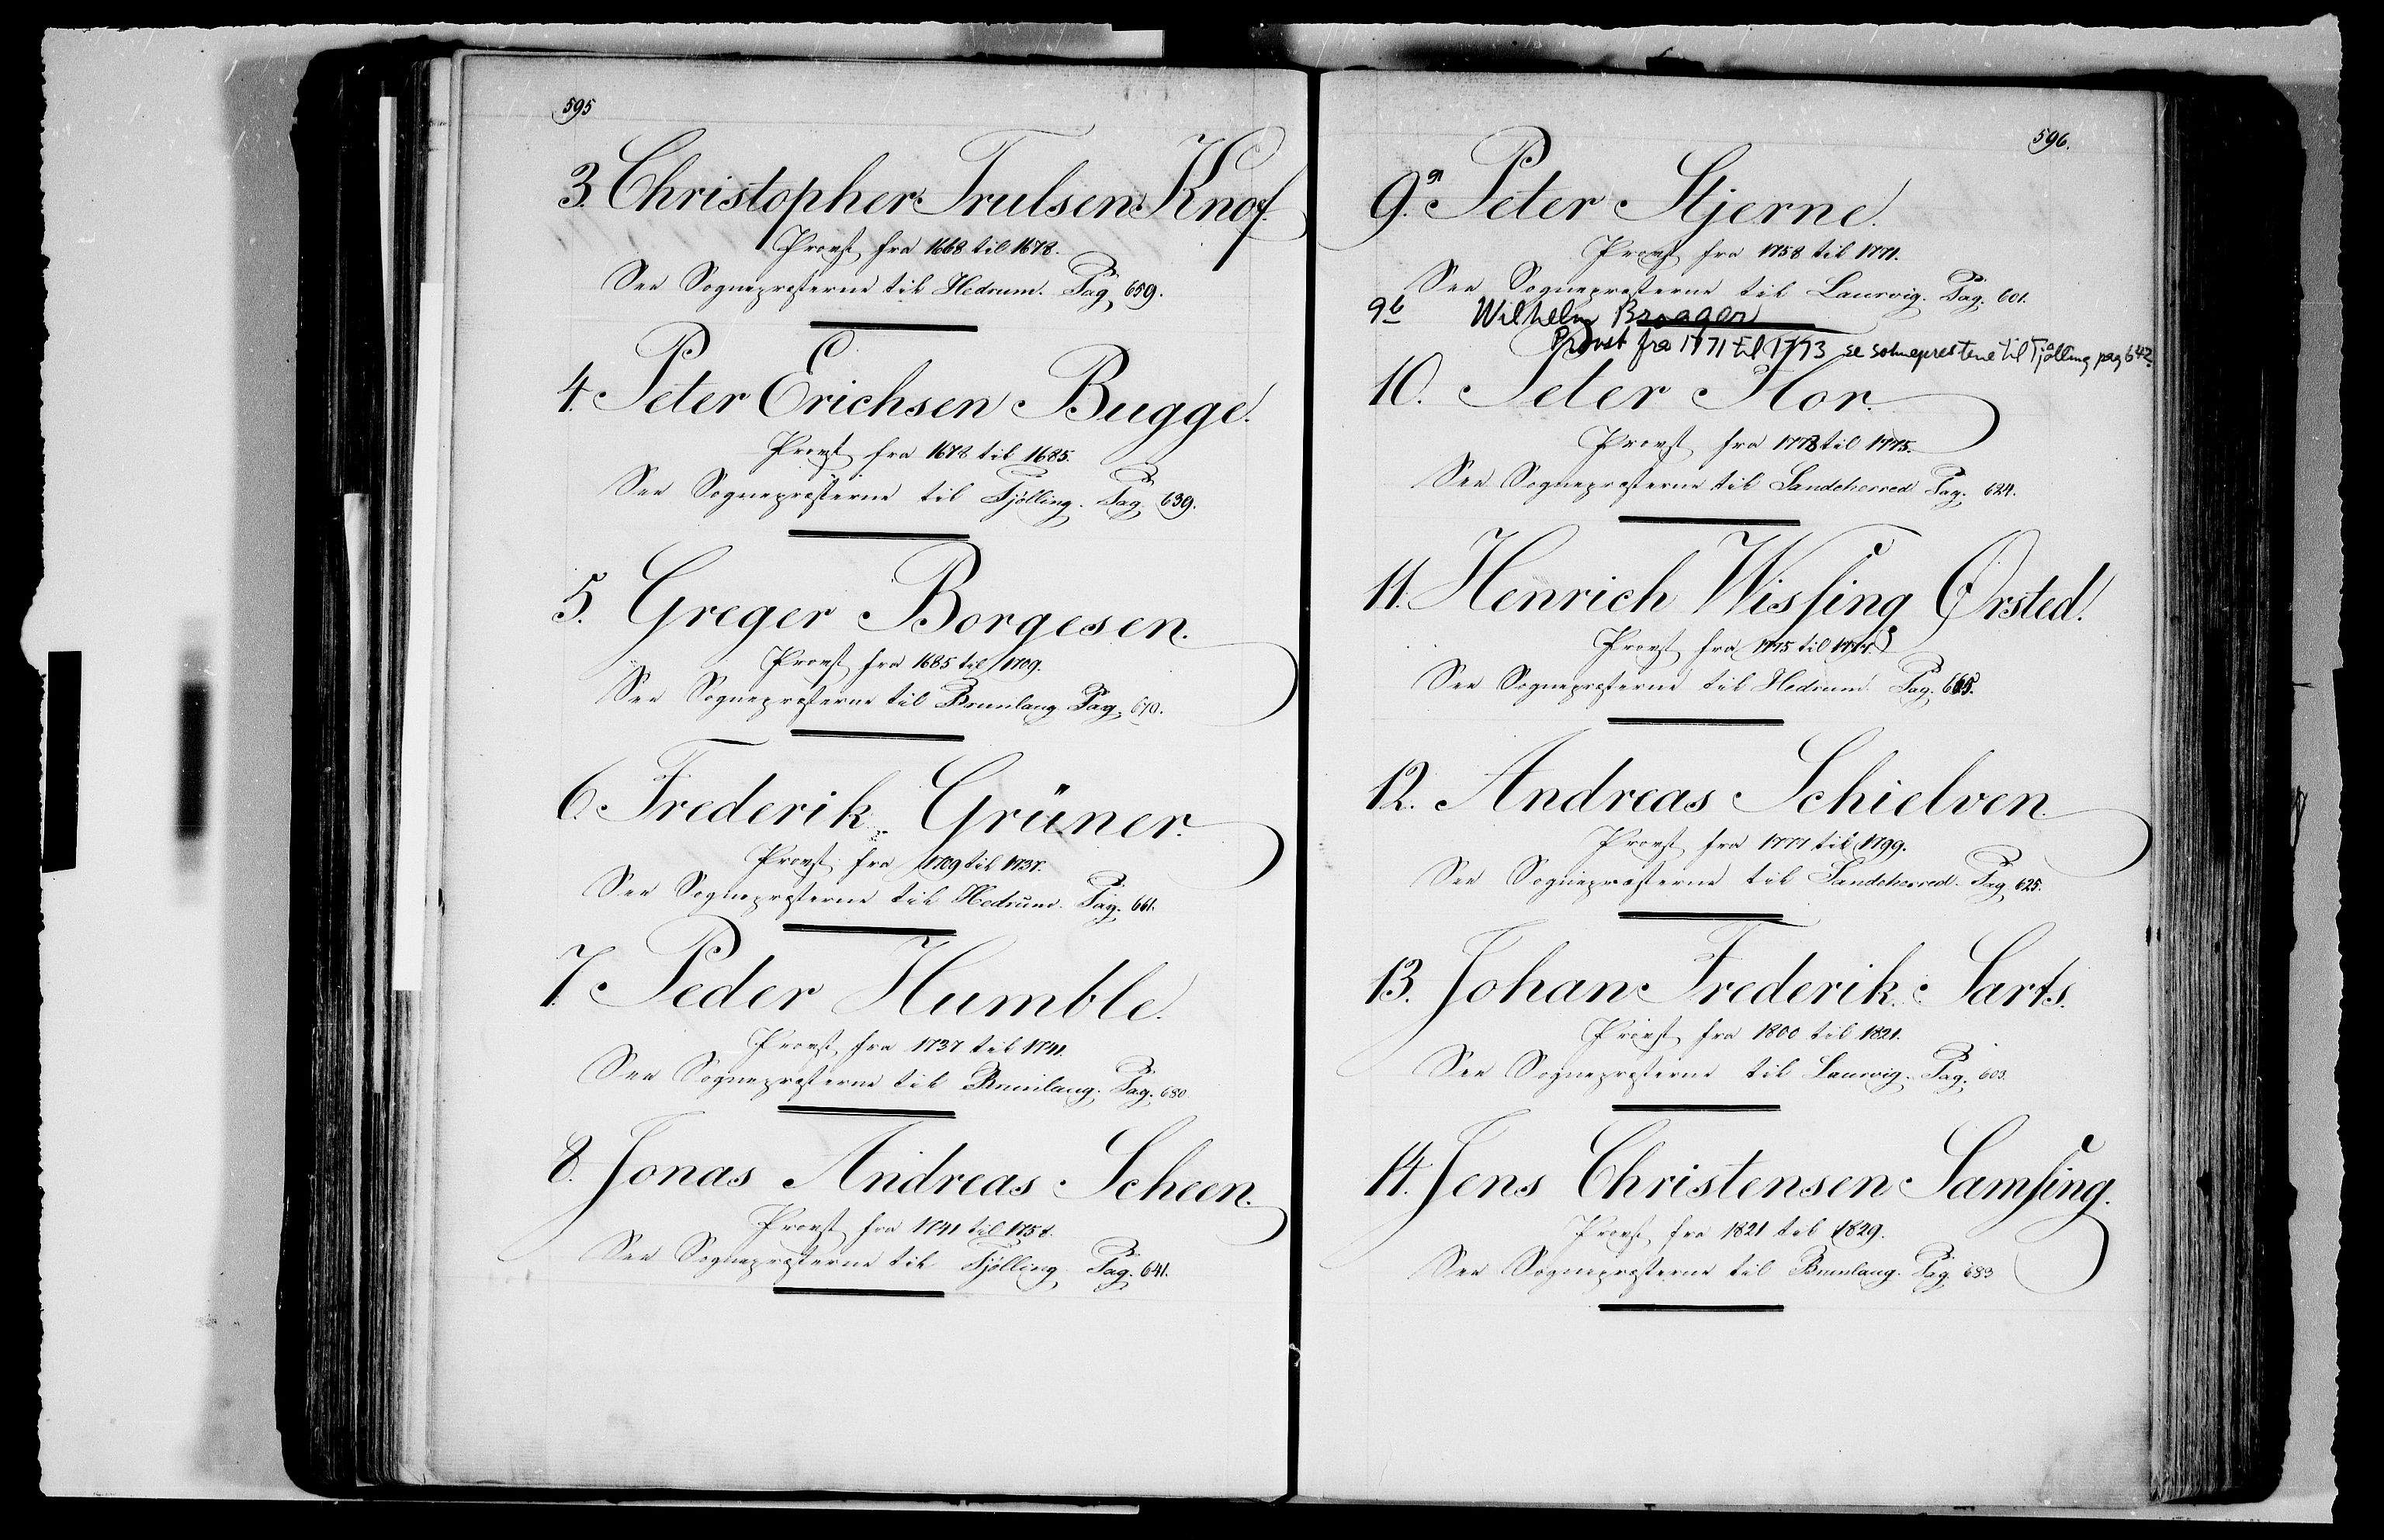 595
3. Christopher Trulsen Knof.
Provst fra 1668 til 1678.
See Sognepræsterne til Hedrum. Pag. 659.
4. Peter Erichsen Bugge.
Provst fra 1678 til 1685.
See Sognepræsterne til Tjølling. Pag. 639.
5. Greger Borgesen.
Provst fra 1685 til 1709.
See Sognepræsterne til Brunlaug. Pag. 670.
6. Frederik Grüner.
Provst fra 1709 til 1737.
See Sognepræsterne til Hedrum. Pag. 661.
7. Peder Humble.
Provst fra 1737 til 1741.
See Sognepræsterne til Brunlaug. Pag. 680.
8. Jonas Andreas Scheen.
Provst fra 1741 til 1758.
See Sognepræsterne til Tjølling. Pag. 641.
596.
9.a Peter Stjerne.
Provst fra 1758 til 1771.
See Sognepræsterne til Laurvig. Pag. 601.
9b Wilhelm
Provst fra 1771 til 1773 se sokneprestene til Tjølling pag 642
10. Peter Hor.
Provst fra 1773 til 1775.
See Sognepræsterne til Sandeherred Pag. 624.
11. Henrich Wissing Ørsted.
Provst fra 1775 til
See Sognepræsterne til Hedrum. Pag. 665.
12. Andreas Schielven.
Provst fra 1777 til 1799.
See Sognepræsterne til Sandeherred. Pag. 625.
13. Johan Frederik Sarts.
Provst fra 1800 til 1821.
See Sognepræsterne til Laurvig. Pag. 603.
14. Jens Christensen Samsing.
Provst fra 1821 til 1829.
See Sognepræsterne til Brunlaug. Pag. 683